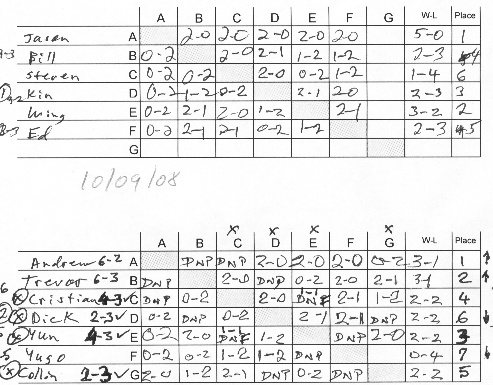 A B C D E F G W-L Place
Jason A 2-0 2-0 2-0 2-0 2-0 5-0 1
Bill B 0-2 2-0 2-1 1-2 1-2 2-3 4
Steven C 0-2 0-2 2-0 0-2 1-2 1-4 6
Kin D 0-2 1-2 0-2 2-1 2-0 2-3 3
Ming E 0-2 2-1 2-0 1-2 2-1 3-2 2
Ed F 0-2 2-1 2-1 0-2 1-2 2-3 5
G
10/09/08
x x x x
A B C D E F G W-L Place
Andrew 6-2 A DNP DNP 2-0 2-0 2-0 0-2 3-1 1 ↑
Trevor 6-3 B DNP 2-0 DNP 0-2 2-0 2-1 3-1 2 ↑
x Cristian 4-3 ✓ C DNP 0-2 2-0 DNF 2-1 1-2 2-2 4
x Dick 2-3 ✓ D 0-2 DNP 0-2 2-1 2-1 DNP 2-2 6 ↓
x Yun 4-3 ✓ E 0-2 2-0 1-1 DNF 1-2 DNP 2-0 2-2 3
Yugo F 0-2 0-2 1-2 1-2 DNP 0-4 7 ↓
x Collin 2-3 ✓ G 2-0 1-2 2-1 DNP 0-2 DNP 2-2 5